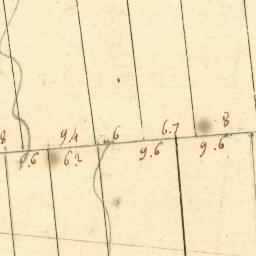 8 9.4 6 6.7 8
9.6 6.2 9.6 9.6